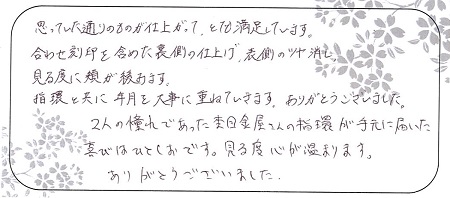 思っていた通りのものが仕上がって、とても満足しています。
合わせ刻印を含めた裏側の仕上げ、表側のツヤ消し、
見る度に頬が緩みます。
指環と共に年月を大事に重ねていきます。ありがとうございました。
2人の憧れであった杢目金屋さんの指環が手元に届いた
喜びはひとしおです。見る度心が温まります。
ありがとうございました。